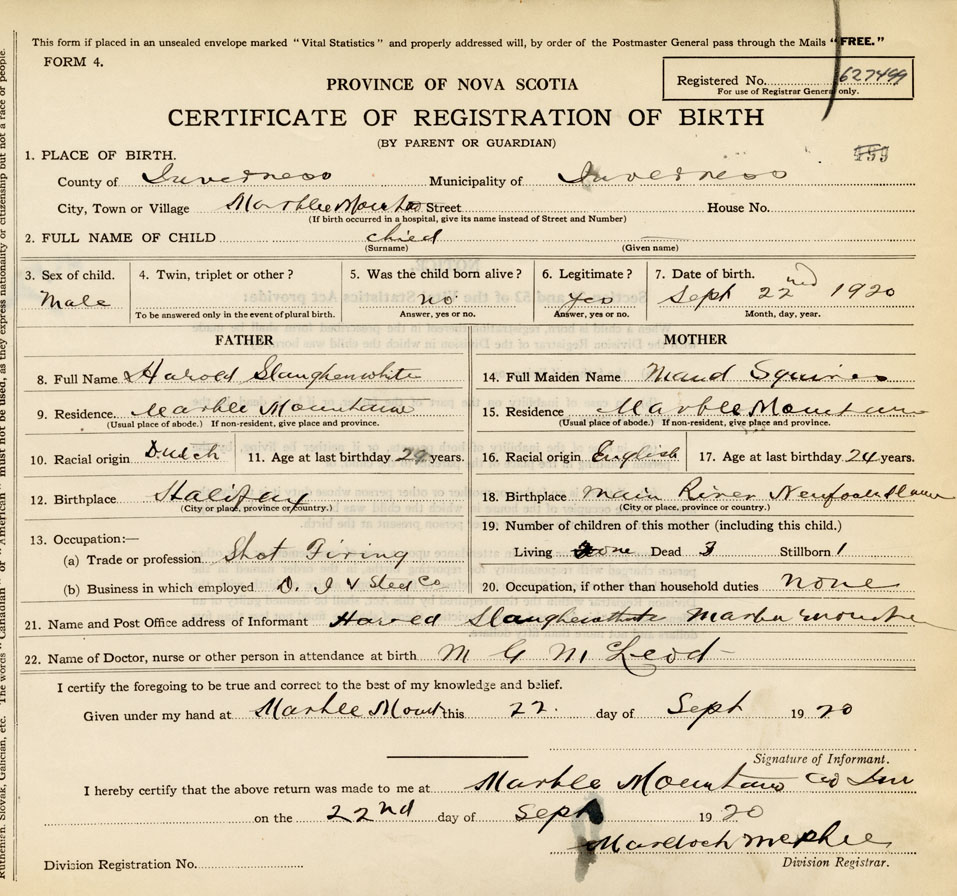 This form if placed in an unsealed envelope marked "Vital Statistics" and properly addressed will, by order of the Postmaster General pass through the Mails "FREE."
FORM 4.
Registered No. 627499
For use of Registrar General only.
PROVINCE OF NOVA SCOTIA
CERTIFICATE OF REGISTRATION OF BIRTH
(BY PARENT OR GUARDIAN)
499
1. PLACE OF BIRTH.
County of Inverness Municipality of Inverness
City, Town or Village Marble Mount Street House No.
(If birth occurred in a hospital, give its name instead of Street and Number)
2. FULL NAME OF CHILD child
(Surname) (Given name)
3. Sex of child. 4. Twin, triplet or other? 5. Was the child born alive? 6. Legitimate? 7. Date of birth.
Male no yes Sept 22nd 1920
To be answered only in the event of plural birth. Answer, yes or no. Answer, yes or no. Month, day, year.
FATHER MOTHER
8. Full Name Harold Slaughenwhite 14. Full Maiden Name Maud Squires
9. Residence Marble Mountain 15. Residence Marble Mountain
(Usual place of abode.) If non-resident, give place and province. (Usual place of abode.) If non-resident, give place and province.
10. Racial origin Dutch 11. Age at last birthday 29 years. 16. Racial origin English 17. Age at last birthday 24 years.
12. Birthplace Halifax 18. Birthplace Main River Newfoundland
(City or place, province or country.) (City or place, province or country.)
19. Number of children of this mother (including this child.)
13. Occupation:—
(a) Trade or profession Shot Firing Living none Dead 3 Stillborn 1
(b) Business in which employed D. I & Steel Co 20. Occupation, if other than household duties none
21. Name and Post Office address of Informant Harold Slaughenwhite Marble Mountain
22. Name of Doctor, nurse or other person in attendance at birth M G McLeod
I certify the foregoing to be true and correct to the best of my knowledge and belief.
Given under my hand at Marble Mount this 22. day of Sept 1920
Signature of Informant.
I hereby certify that the above return was made to me at Marble Mountain Co Inv
on the 22nd day of Sept 1920
Murdoch McPhee
Division Registration No. Division Registrar.
Ruthenian, Slovak, Galician, etc. The words "Canadian" or "American" must not be used, as they express nationality or citizenship but not a race or people.